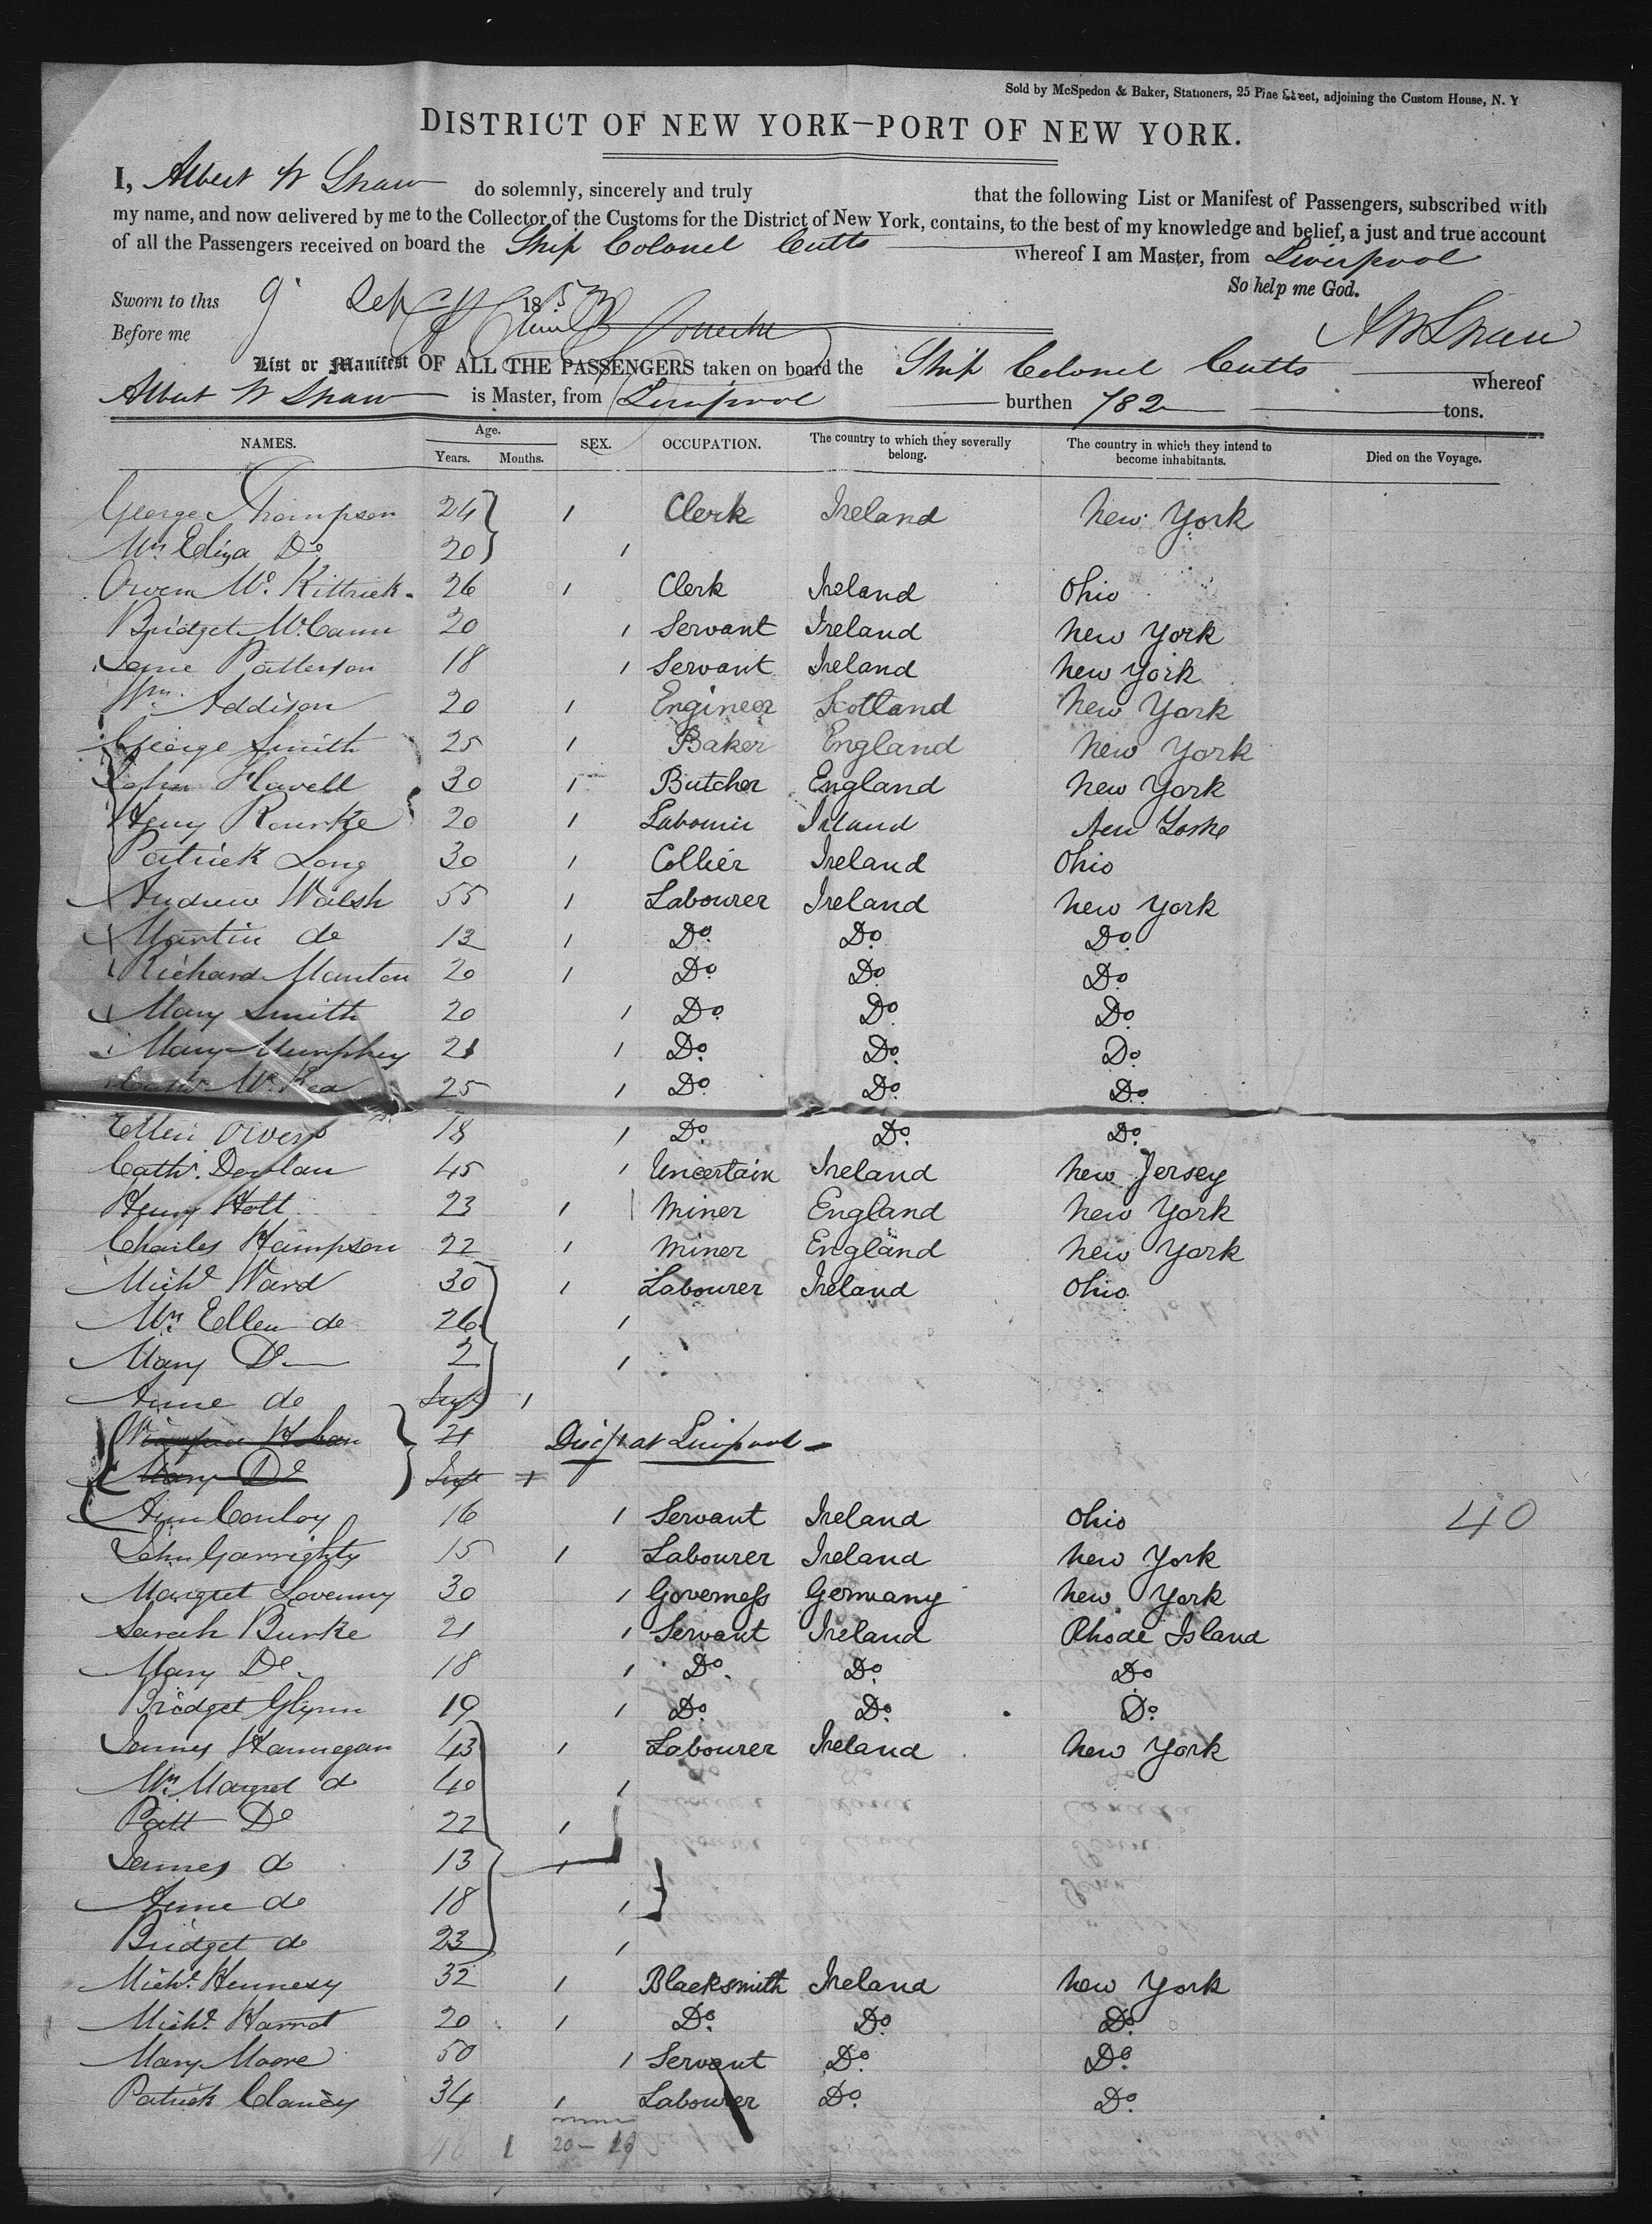 Sold by McSpedon & Baker, Stationers, 25 Pine Street, adjoining the Custom House, N. Y
DISTRICT OF NEW YORK—PORT OF NEW YORK.
I, Albert W Shaw do solemnly, sincerely and truly that the following List or Manifest of Passengers, subscribed with
my name, and now delivered by me to the Collector of the Customs for the District of New York, contains, to the best of my knowledge and belief, a just and true account
of all the Passengers received on board the Ship Colonel Cutts whereof I am Master, from Liverpool
So help me God.
Sworn to this 9 Sept 1853 A W Shaw
Before me
List or Manifest OF ALL THE PASSENGERS taken on board the Ship Colonel Cutts whereof
Albert W Shaw is Master, from Liverpool burthen 782 tons.
NAMES. Age. Years. Months. SEX. OCCUPATION. The country to which they severally belong. The country in which they intend to become inhabitants. Died on the Voyage.
George Thompson 24 1 Clerk Ireland New York
Mrs Eliza Do 20 1
Owen Mc Kittrick 26 1 Clerk Ireland Ohio
Bridget McCann 20 1 Servant Ireland New York
Jane Patterson 18 1 Servant Ireland New York
Wm. Addison 20 1 Engineer Scotland New York
George Smith 25 1 Baker England New York
John Flavell 30 1 Butcher England New York
Henry Rourke 20 1 Labourer Ireland New York
Patrick Long 30 1 Collier Ireland Ohio
Andrew Walsh 55 1 Labourer Ireland New York
Martin do 13 1 Do. Do. Do.
Richard Manton 20 1 Do. Do. Do.
Mary Smith 20 1 Do. Do. Do.
Mary Murphey 21 1 Do. Do. Do.
Mc Kea 25 1 Do. Do. Do.
Ellen Owens 18 1 Do. Do. Do.
Cathe. Doolan 45 1 Uncertain Ireland New Jersey
Henry Holt 23 1 Miner England New York
Charles Hampson 22 1 Miner England New York
Michl Ward 30 1 Labourer Ireland Ohio
Mrs Ellen do 26 1
Mary Do 2 1
Anne do Inft 1
Hoban 21 Disch at Liverpool
Mary Do Inft 1
Ann Conloy 16 1 Servant Ireland Ohio 40
John Garrighty 15 1 Labourer Ireland New York
Margret Lovenny 30 1 Governess Germany New York
Sarah Burke 21 1 Servant Ireland Rhode Island
Mary Do 18 1 Do. Do. Do
Bridget Glynn 19 1 Do. Do. Do.
James Hannegan 43 1 Labourer Ireland New York
Mrs Margret do 40 1
Patt Do 22 1
James do 13 1
Anne do 18 1
Bridget do 23 1
Michl. Hennesy 32 1 Blacksmith Ireland New York
Michl. 20 1 Do. Do. Do.
Mary Moore 50 1 Servant Do. Do.
Patrick Clancy 34 1 Labourer Do. Do.
40 1 20 - 19